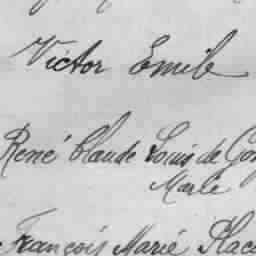 Victor Emile
René Claude Louis de Gon
Marie
François Marié Plac